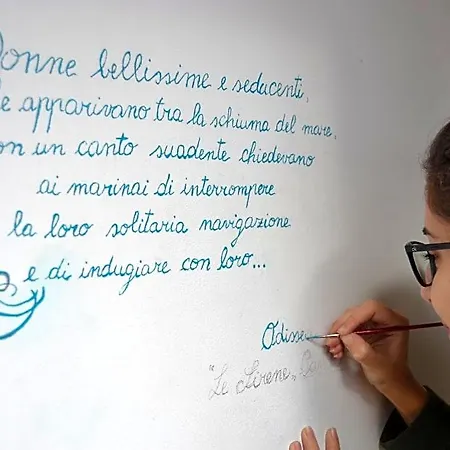 Donne bellissime e seducenti,
e apparivano tra la schiuma del mare,
on un canto suadente chiedevano
ai marinai di interrompere
la loro solitaria navigazione
e di indugiare con loro...
Odissea
"Le Sirene"